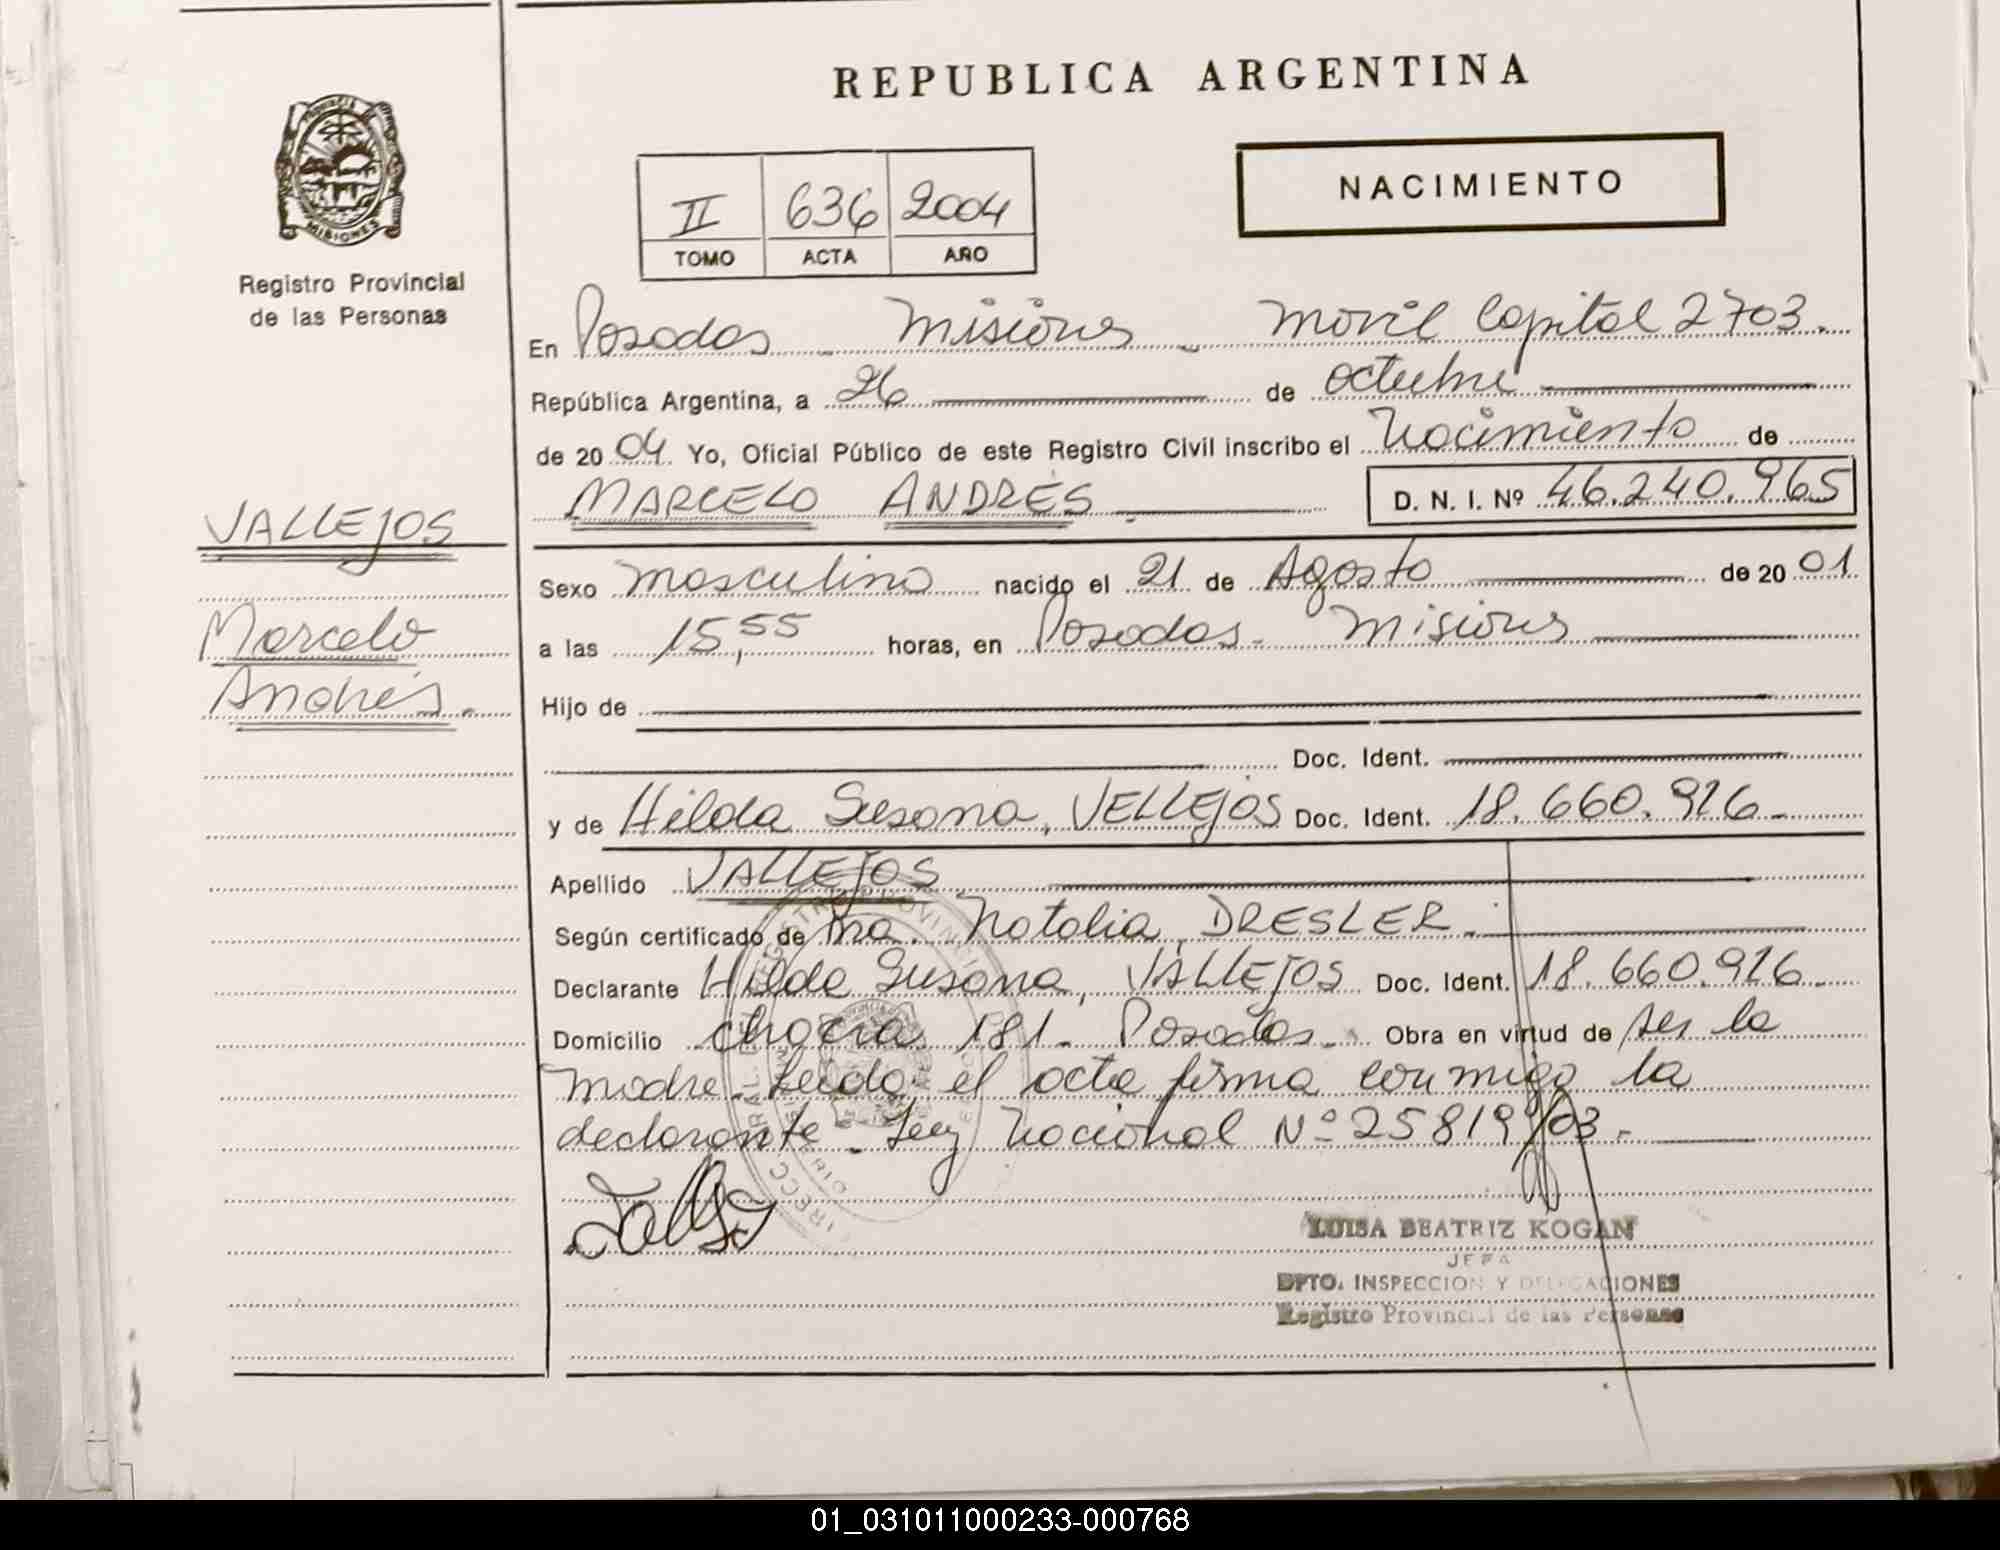 REPUBLICA ARGENTINA
PROVINCIA
MISIONES
Registro Provincial
de las Personas
II 636 2004
TOMO ACTA AÑO
NACIMIENTO
En Posadas - Misiones - Movil Capital 2703.
República Argentina, a 26 de octubre
de 2004 Yo, Oficial Público de este Registro Civil inscribo el Nacimiento de
MARCELO ANDRES D. N. I. Nº 46.240.965
VALLEJOS
Marcelo
Andrés.
Sexo masculino nacido el 21 de Agosto de 2001
a las 15,55 horas, en Posadas - Misiones
Hijo de
Doc. Ident.
y de Hilda Susana, VELLEJOS Doc. Ident. 18.660.926
Apellido VALLEJOS
Según certificado de Ma. Natalia, DRESLER.
Declarante Hilda Susana, VALLEJOS Doc. Ident. 18.660.926
Domicilio 181 - Posadas - Obra en virtud de ser la
madre. Leida el acta firma conmigo la
declarante - Ley Nacional Nº 25819/03.-
LUISA BEATRIZ KOGAN
JEFA
DPTO. INSPECCION Y DELEGACIONES
Registro Provincial de las Personas
01_031011000233-000768